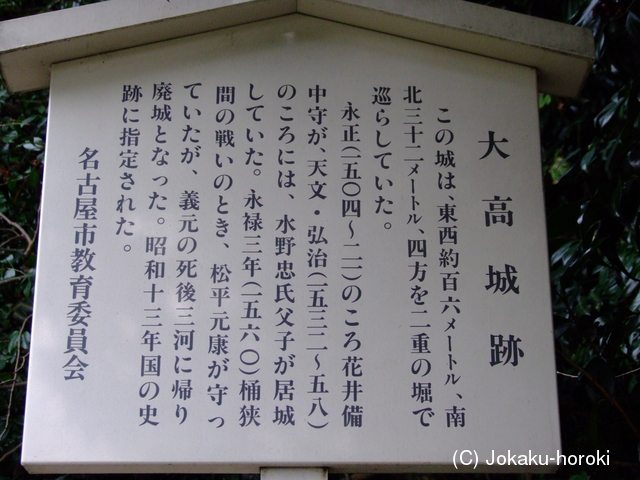 大高城跡
この城は、東西約百六メートル、南
北三十二メートル、四方を二重の堀で
巡らしていた。
永正(一五〇四～二一)のころ花井備
中守が、天文・弘治(一五三二～五八)
のころには、水野忠氏父子が居城
していた。永禄三年(一五六〇)桶狭
間の戦いのとき、松平元康が守っ
ていたが、義元の死後三河に帰り
廃城となった。昭和十三年国の史
跡に指定された。
名古屋市教育委員会
(C) Jokaku-horoki